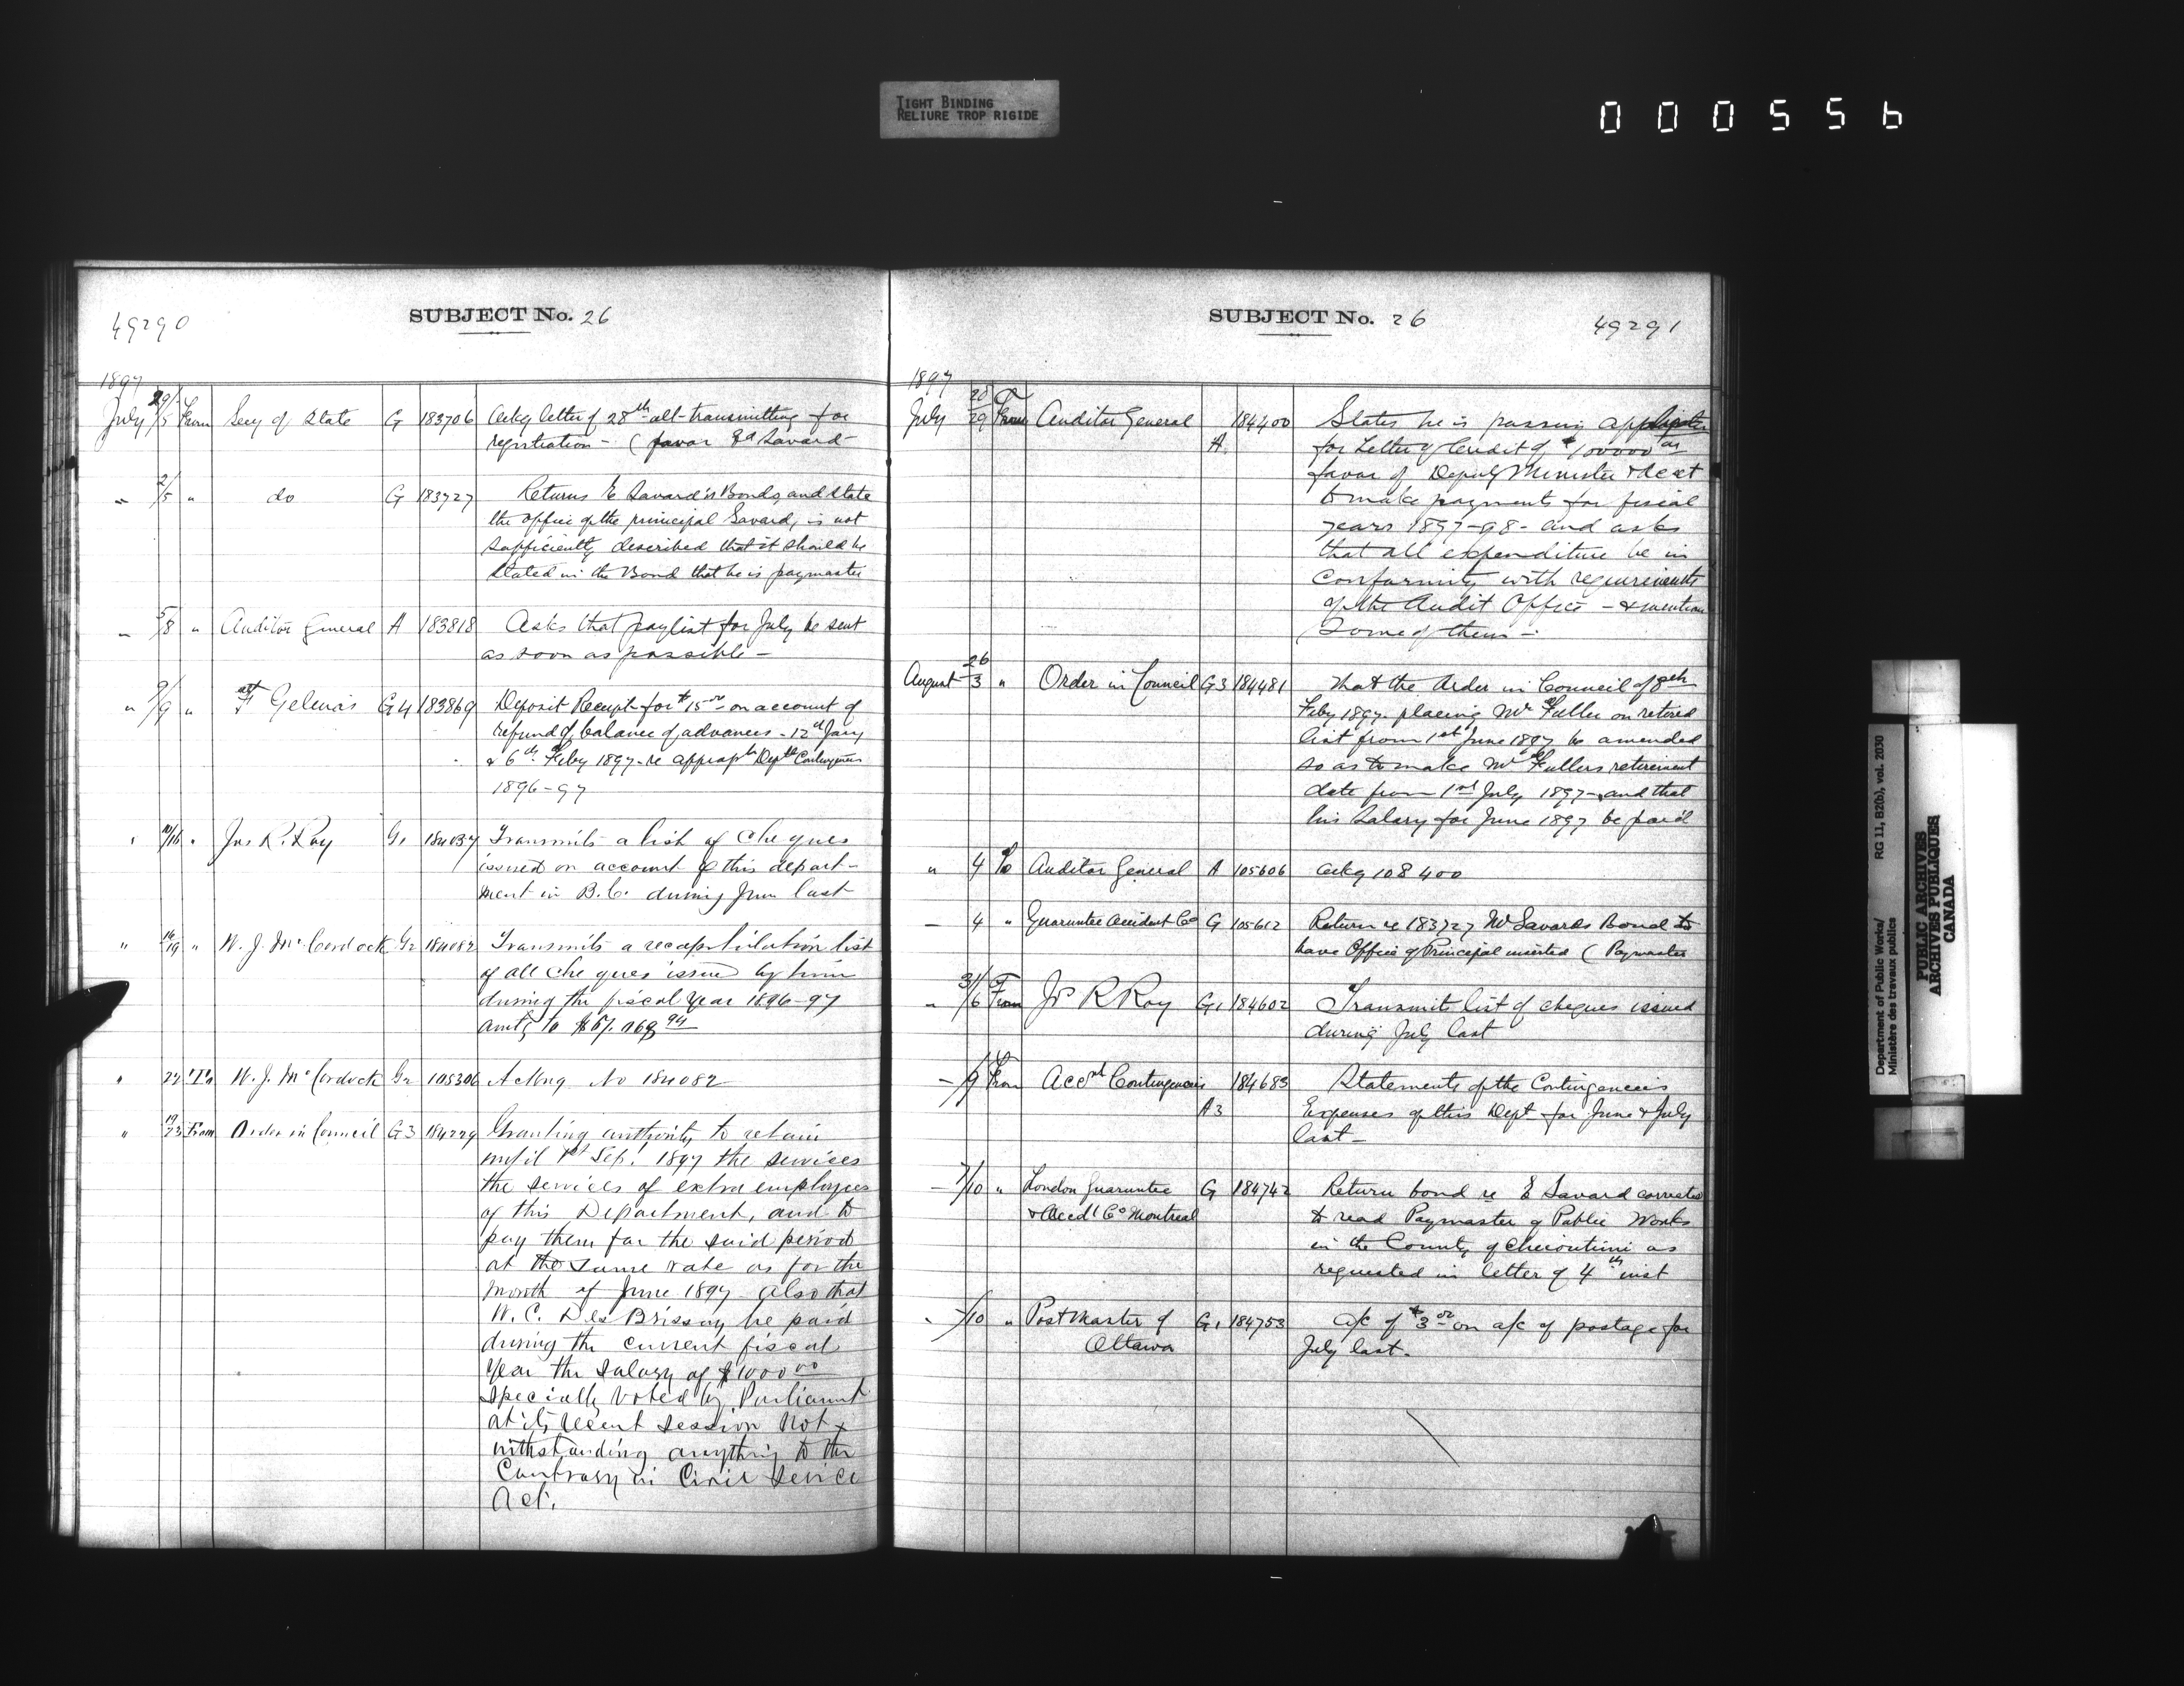 TIGHT BINDING
RELIURE TROP RIGIDE
000556
49290
SUBJECT No. 26
1897
July 29/5 From Secy of State G 183706 Ackg letter of 28th ult transmitting for
registration - ( favor Ed Savard -
" 2/5 " do G 183727 Returns E Savard's Bonds and state
the office of the principal Savard, is not
sufficiently described that it should be
stated in the Bond that he is paymaster
" 5/8 " Auditor General A 183818 Asks that paylist for July be sent
as soon as possible -
" 9/9 " F Gelinas G4 183869 Deposit Receipt for $15 00 on account of
refund of balance of advances - 12th Jany
& 6th Feby 1897 - re approp Dept Contingencies
1896-97
" /16 " Jas R. Roy G1 184037 Transmits a list of Cheques
issued on account of this depart-
ment in B.C. during June last
" 16/19 " W. J. McCordock G2 184082 Transmits a recapitulation list
of all cheques issued by him
during the fiscal year 1896-97
amtg to
" 22 To W. J. McCordock G2 105306 Acking No 184082
" 19/23 From Order in Council G3 184229 Granting authority to retain
until 1st Sep. 1897 the services
the services of extra employees
of this Department, and to
pay them for the said period
at the same rate as for the
month of June 1897 - also that
W. C. DesBrisay be paid
during the current fiscal
year the salary of $1000 00
specially voted by Parliament
at its recent session not
withstanding anything to the
Contrary in Civil Service
Act.
SUBJECT No. 26
49291
1897
July 28/29 From Auditor General A 184400 States he is passing application
for Letter of Credit of $100000 in
favor of Deputy Minister & Acct
to make payments for fiscal
years 1897-98 - and asks
that all expenditure be in
conformity with requirements
of the Audit Office - & mention
some of them -
August 26/3 " Order in Council G3 184481 That the Order in Council of 8th
Feby 1897 placing Mr Fuller on retired
list from 1st June 1897 be amended
so as to make Mr Fullers retirement
date from 1st July 1897 - and that
his Salary for June 1897 be paid
" 4 To Auditor General A 105606 Ackg 108400
— 4 " Guarantee Accident Co G 105612 Return re 183727 Mr Savards Bond to
have Office of Principal inserted ( Paymaster
" 31/6 From Js R Roy G1 184602 Transmits list of cheques issued
during July last
— /9 From Acct Contingencies A3 184683 Statements of the Contingencies
Expenses of this Dept for June & July
last -
— 7/10 " London Guarantee G 184742 Return bond re E Savard corrected
& Accdt Co Montreal to read Paymaster of Public Works
in the County of Chicoutimi as
requested in letter of 4th inst
" /10 " Post Master of G1 184753 a/c of $3 00 on a/c of postage for
Ottawa July last.
Department of Public Works/ RG 11, B2(b), vol. 2030
Ministère des travaux publics
PUBLIC ARCHIVES
ARCHIVES PUBLIQUES
CANADA